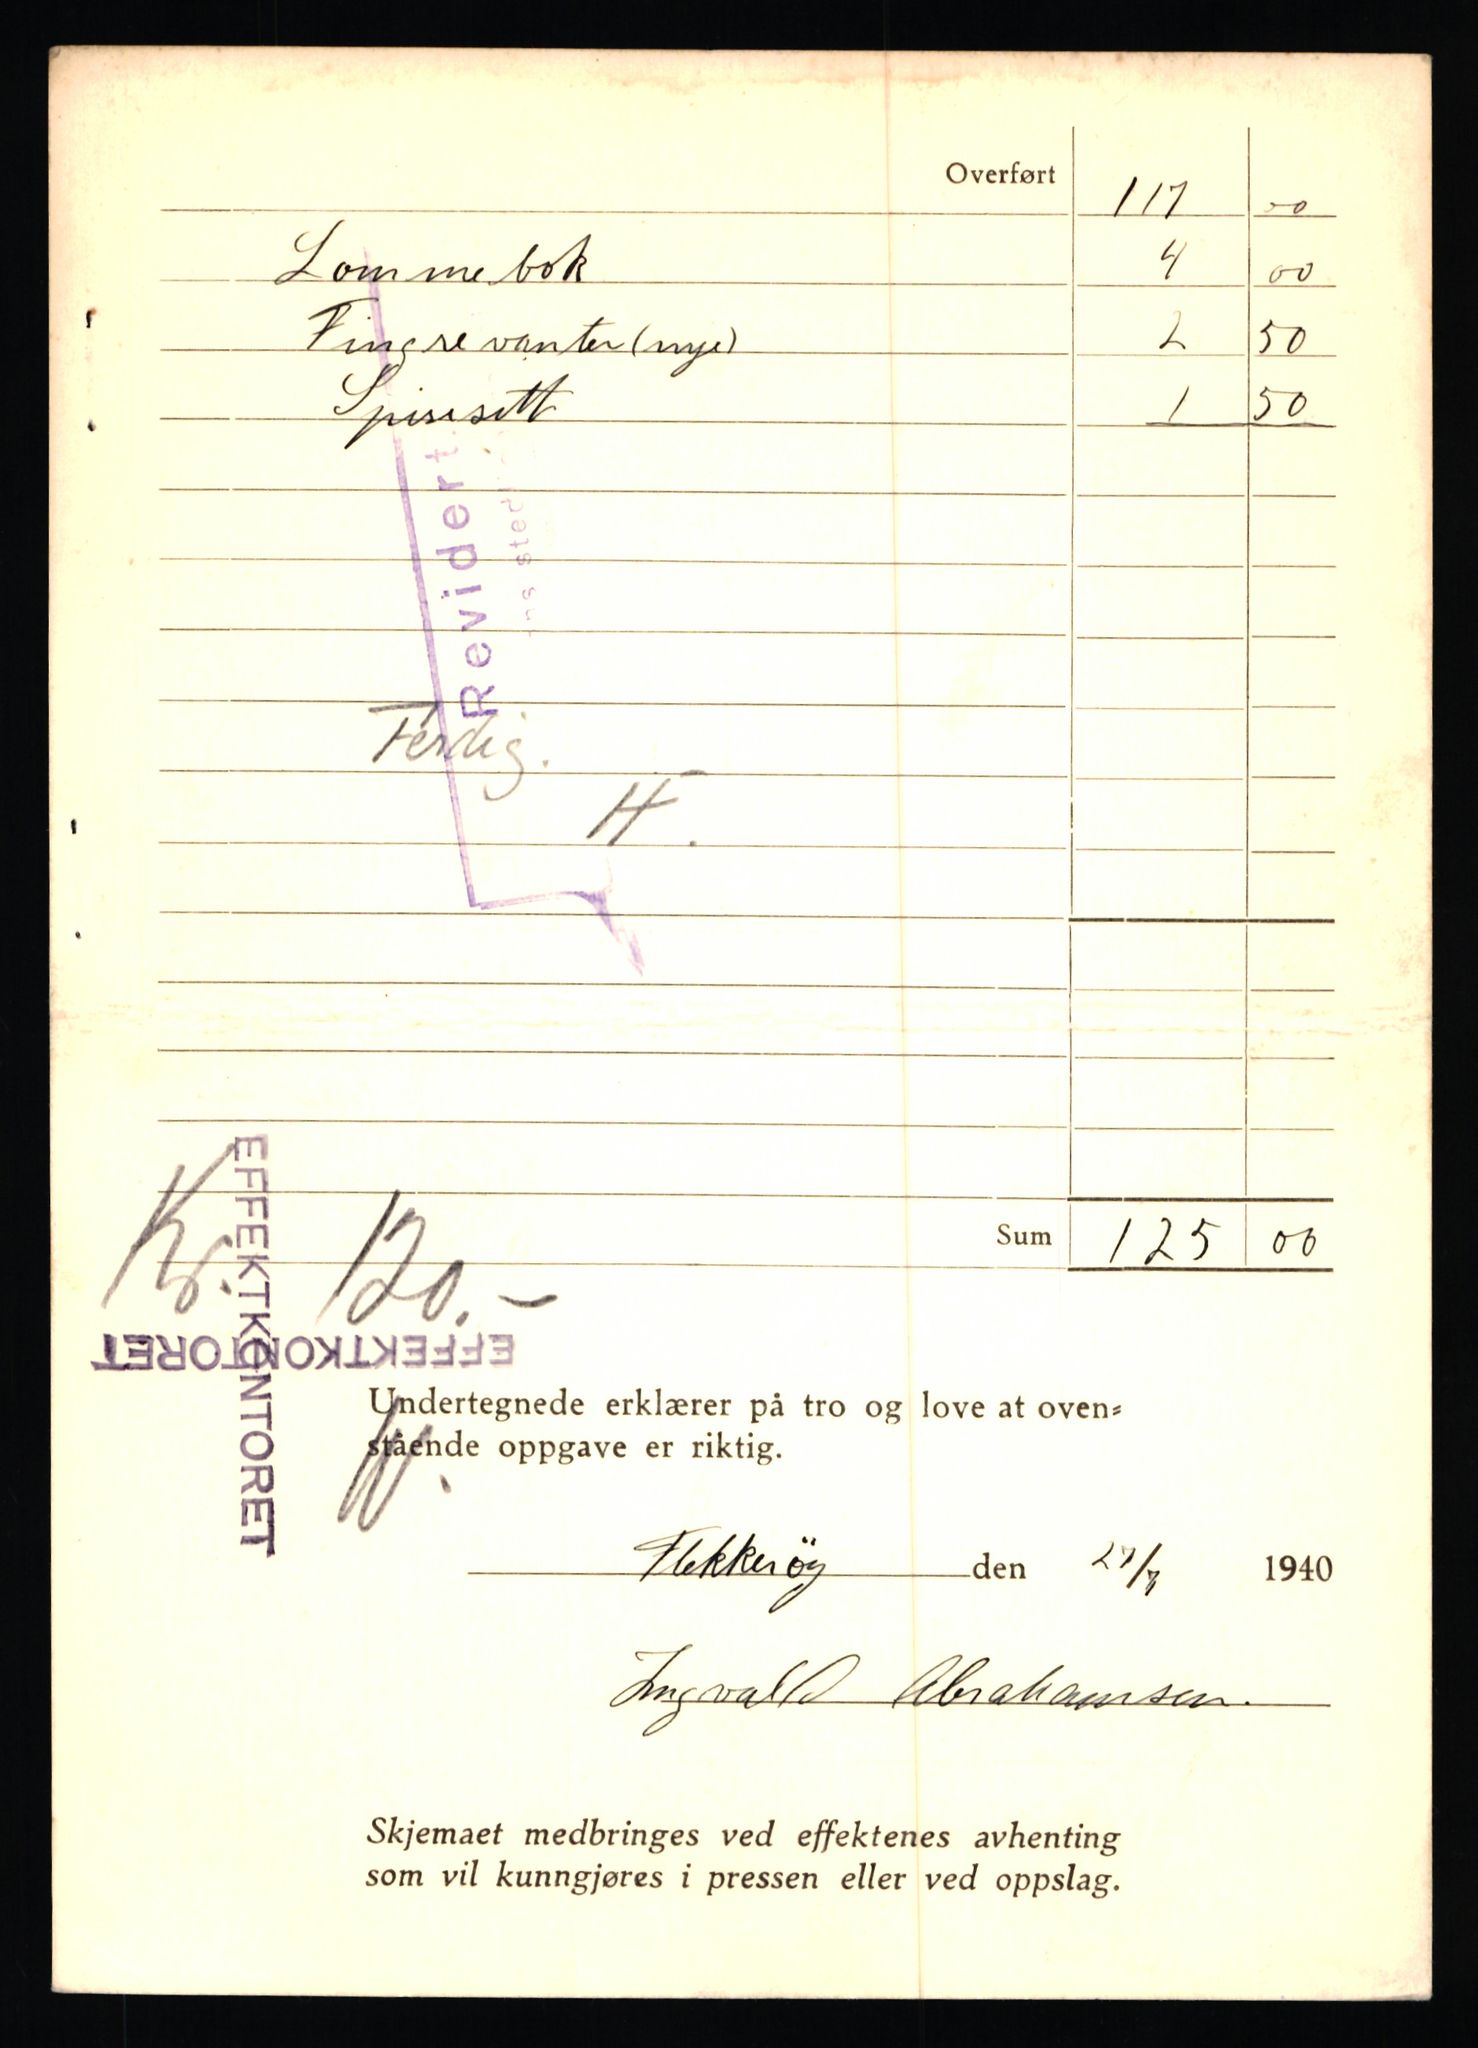 Overført 117 00
Lommebok 4 00
Fingrevanter (nye) 2 50
Spisesett 1 50
Revidert
ns sted
Ferdig.
H.
EFFEKTKONTORET
Sum 125 00
Kr. 120.-
EFFEKTKONTORET
Undertegnede erklærer på tro og love at oven=
stående oppgave er riktig.
H.
Flekkeröy den 27/7 1940
Ingvald Abrahamsen.
Skjemaet medbringes ved effektenes avhenting
som vil kunngjøres i pressen eller ved oppslag.